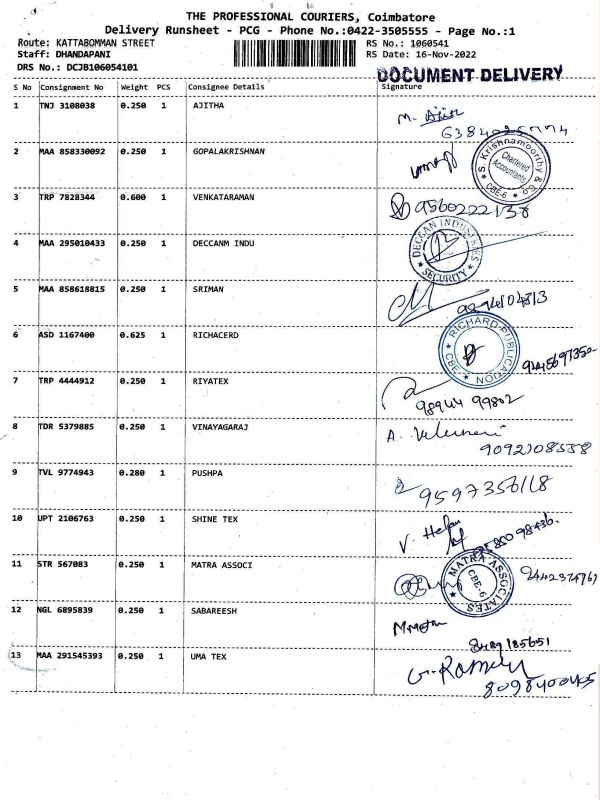 THE PROFESSIONAL COURIERS, Coimbatore
Delivery Runsheet - PCG - Phone No.:0422-3505555 - Page No.:1
Route: KATTABOMMAN STREET RS No.: 1060541
Staff: DHANDAPANI RS Date: 16-Nov-2022
DRS No.: DCJB106054101
DOCUMENT DELIVERY
S No Consignment No Weight PCS Consignee Details Signature
1 TNJ 3108038 0.250 1 AJITHA
M.
2 MAA 858330092 0.250 1 GOPALAKRISHNAN
S. Krishnamoorthy & Co
Chartered Accountants
CBE-6
3 TRP 7828344 0.600 1 VENKATARAMAN
9560222138
4 MAA 295010433 0.250 1 DECCANM INDU
DECCAN INDUSTRIES
SECURITY
5 MAA 858618815 0.250 1 SRIMAN
6 ASD 1167400 0.625 1 RICHACERD
RICHARD PUBLICATION
CBE
7 TRP 4444912 0.250 1 RIYATEX
98944 99802
8 TDR 5379885 0.250 1 VINAYAGARAJ
A.
9092108558
9 TVL 9774943 0.280 1 PUSHPA
10 UPT 2106763 0.250 1 SHINE TEX
V.
11 STR 567083 0.250 1 MATRA ASSOCI
MATRA ASSOCIATES
CBE-6
12 NGL 6895839 0.250 1 SABAREESH
8489185651
13 MAA 291545393 0.250 1 UMA TEX
8098400405